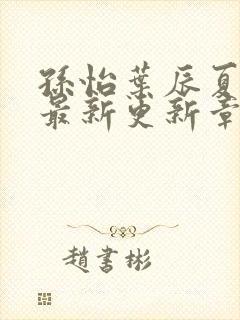 孫怡葉辰夏
最新更新章
趙書彬